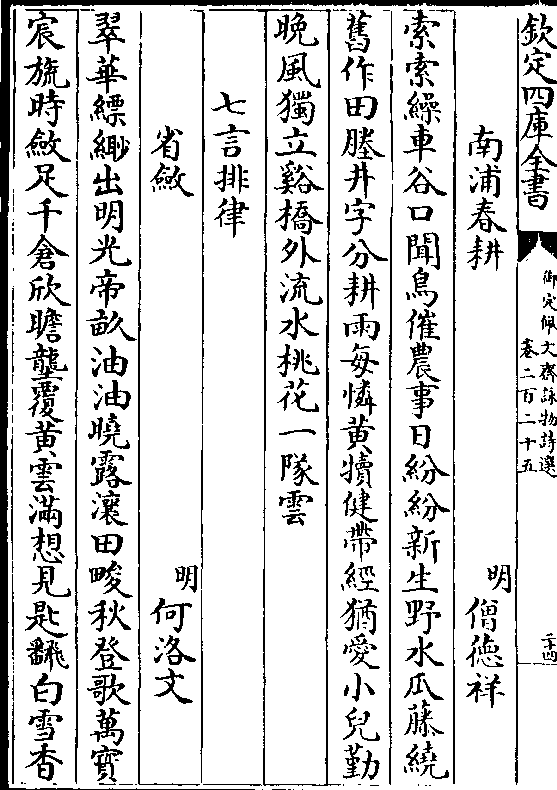 欽定四庫全書
御定佩文齋詠物詩選
卷二百二十五
二十四
南浦春耕
明 僧德祥
索索繰車谷口聞鳥催農事日紛紛新生野水瓜藤繞
舊作田塍井字分耕雨每憐黃犢健帶經猶愛小兒勤
晚風獨立谿橋外流水桃花一隊雲
七言排律
省斂
明 何洛文
翠華縹緲出明光帝畝油油曉露瀼田畯秋登歌萬寶
宸旒時斂足千倉欣瞻壟覆黃雲滿想見匙飜白雪香